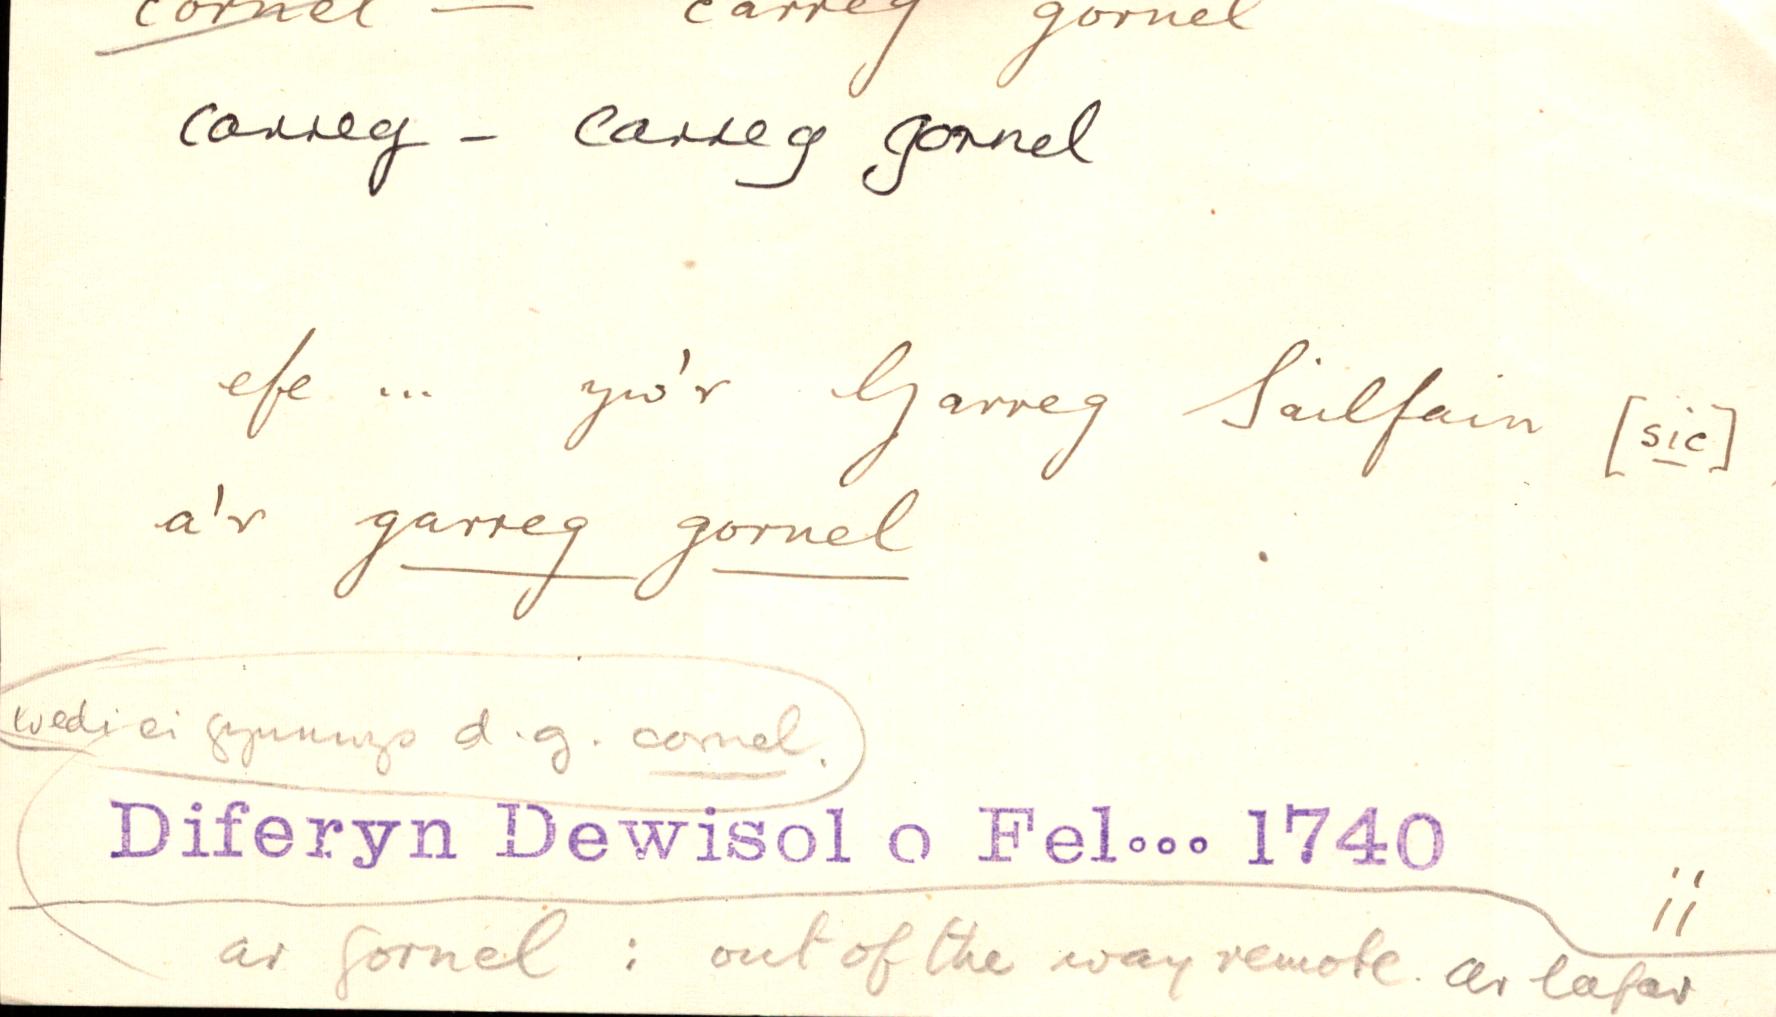 cornel — carreg gornel
carreg - carreg gornel
efe ... yw'r Garreg Sailfain [sic]
a'r garreg gornel
wedi ei gynnwys d.g. cornel.
Diferyn Dewisol o Fel... 1740
ii
ar gornel : out of the way remote. ar lafar